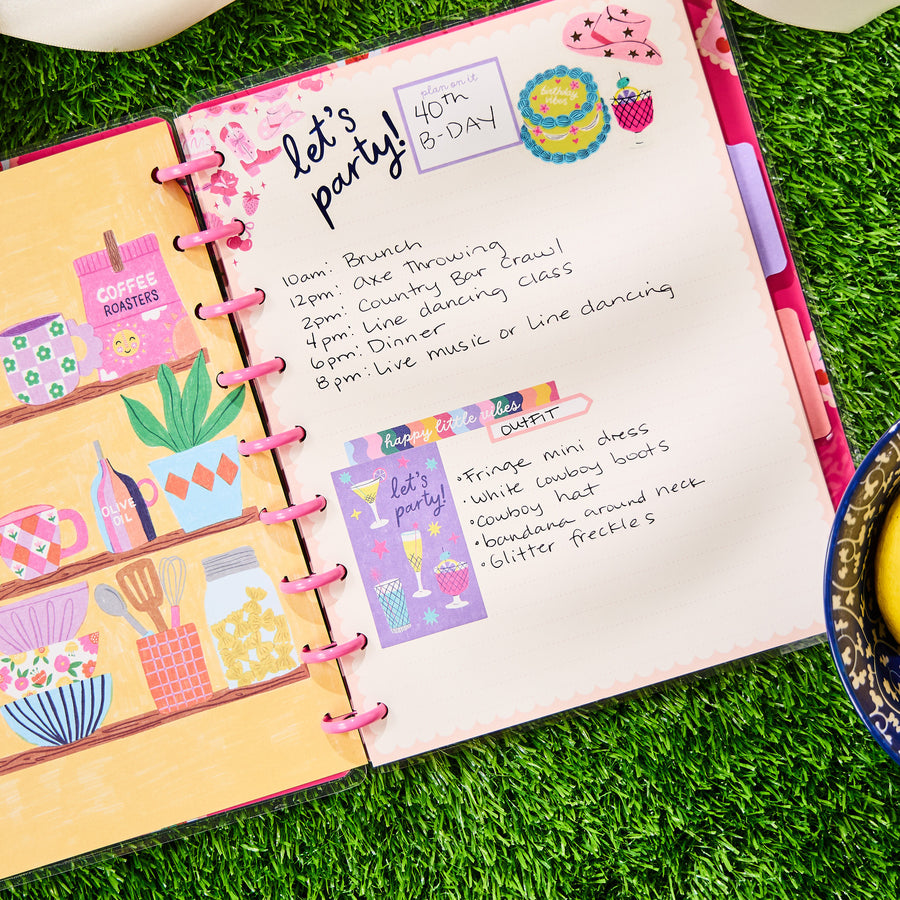 COFFEE
ROASTERS
OLIVE
OIL
let's
party!
plan on it
40th
B-DAY
birthday
vibes
10am: Brunch
12pm: Axe Throwing
2pm: Country Bar Crawl
4pm: Line dancing class
6pm: Dinner
8pm: Live music or line dancing
happy little vibes
OUTFIT
let's
party!
•Fringe mini dress
•white cowboy boots
•cowboy hat
•bandana around neck
•Glitter freckles